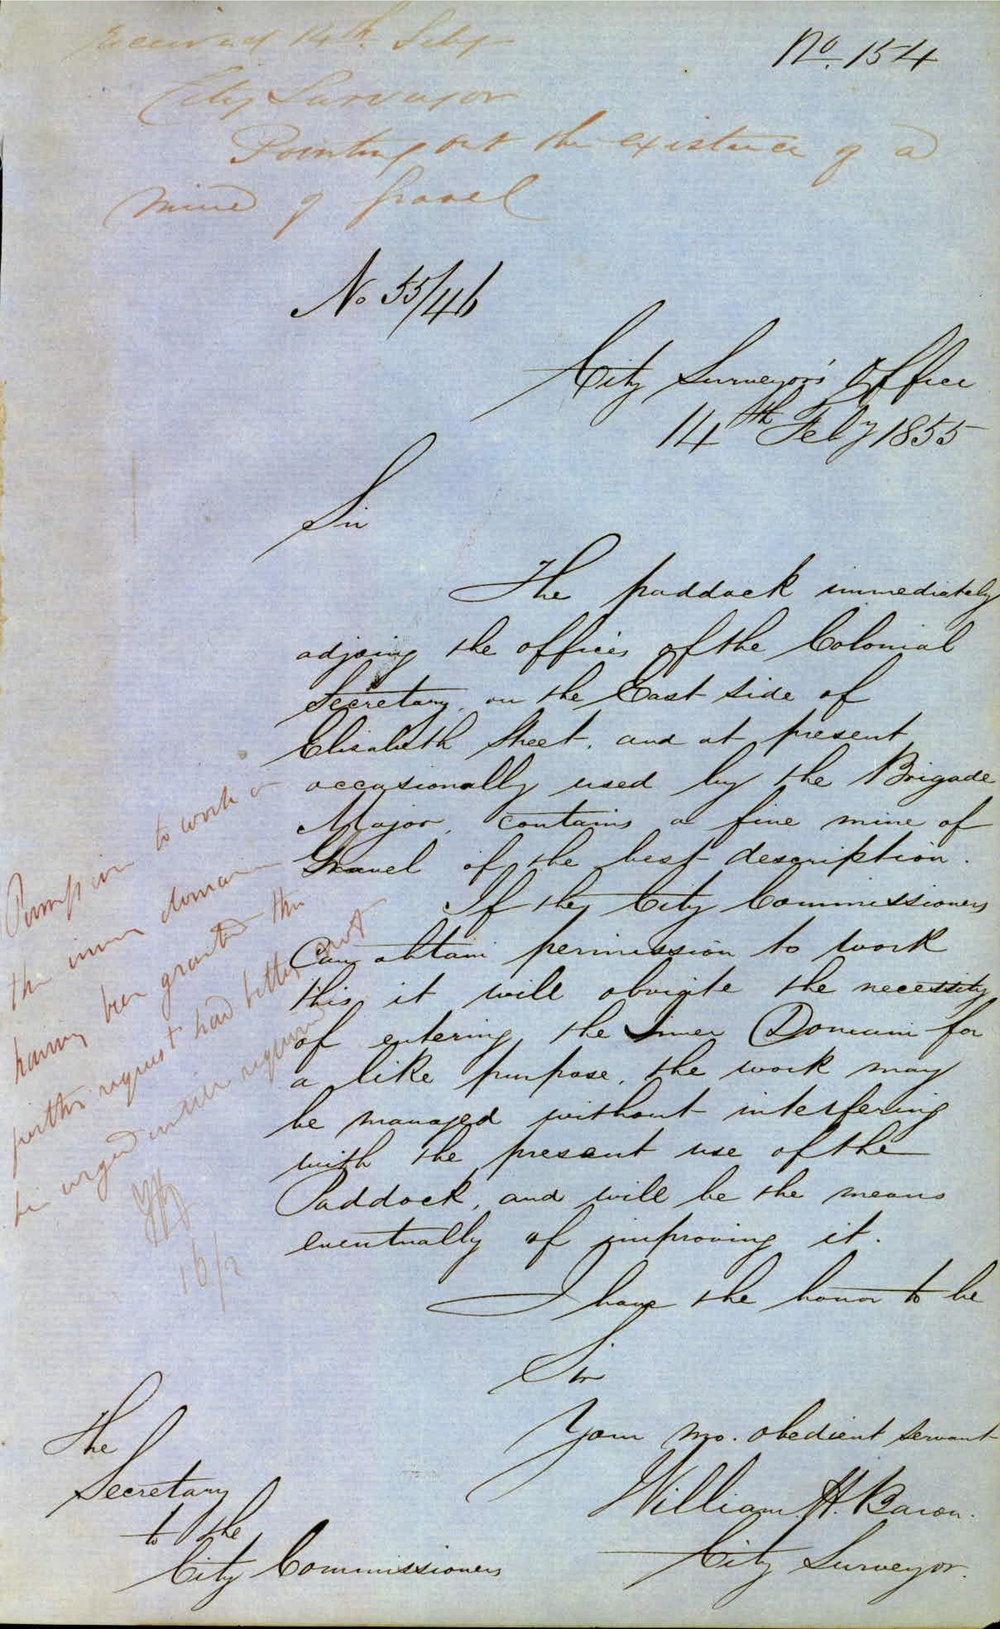 No. 154
Received 14th Feby
City Surveyor
Pointing out the existence of a
mine of Gravel
No 55/46
City Surveyor's Office
14th Feby 1855
Sir
The paddock immediately
adjoing the offices of the Colonial
Secretary, on the East side of
Elizabeth Street, and at present
occasionally used by the Brigade
Major, contains a fine mine of
Gravel of the best description.
If the City Commissioners
Can obtain permission to work
this it will obviate the necessity
of entering the Inner Domain for
a like purpose, the work may
be managed without interfering
with the present use of the
Paddock, and will be the means
eventually of improving it.
I have the honor to be
Sir
Your mo. obedient servant
William H. Baron.
City Surveyor.
The
Secretary
to the
City Commissioners
Permission to work in
the inner domain
having been granted this
further request had better not
be urged unless required
16/2